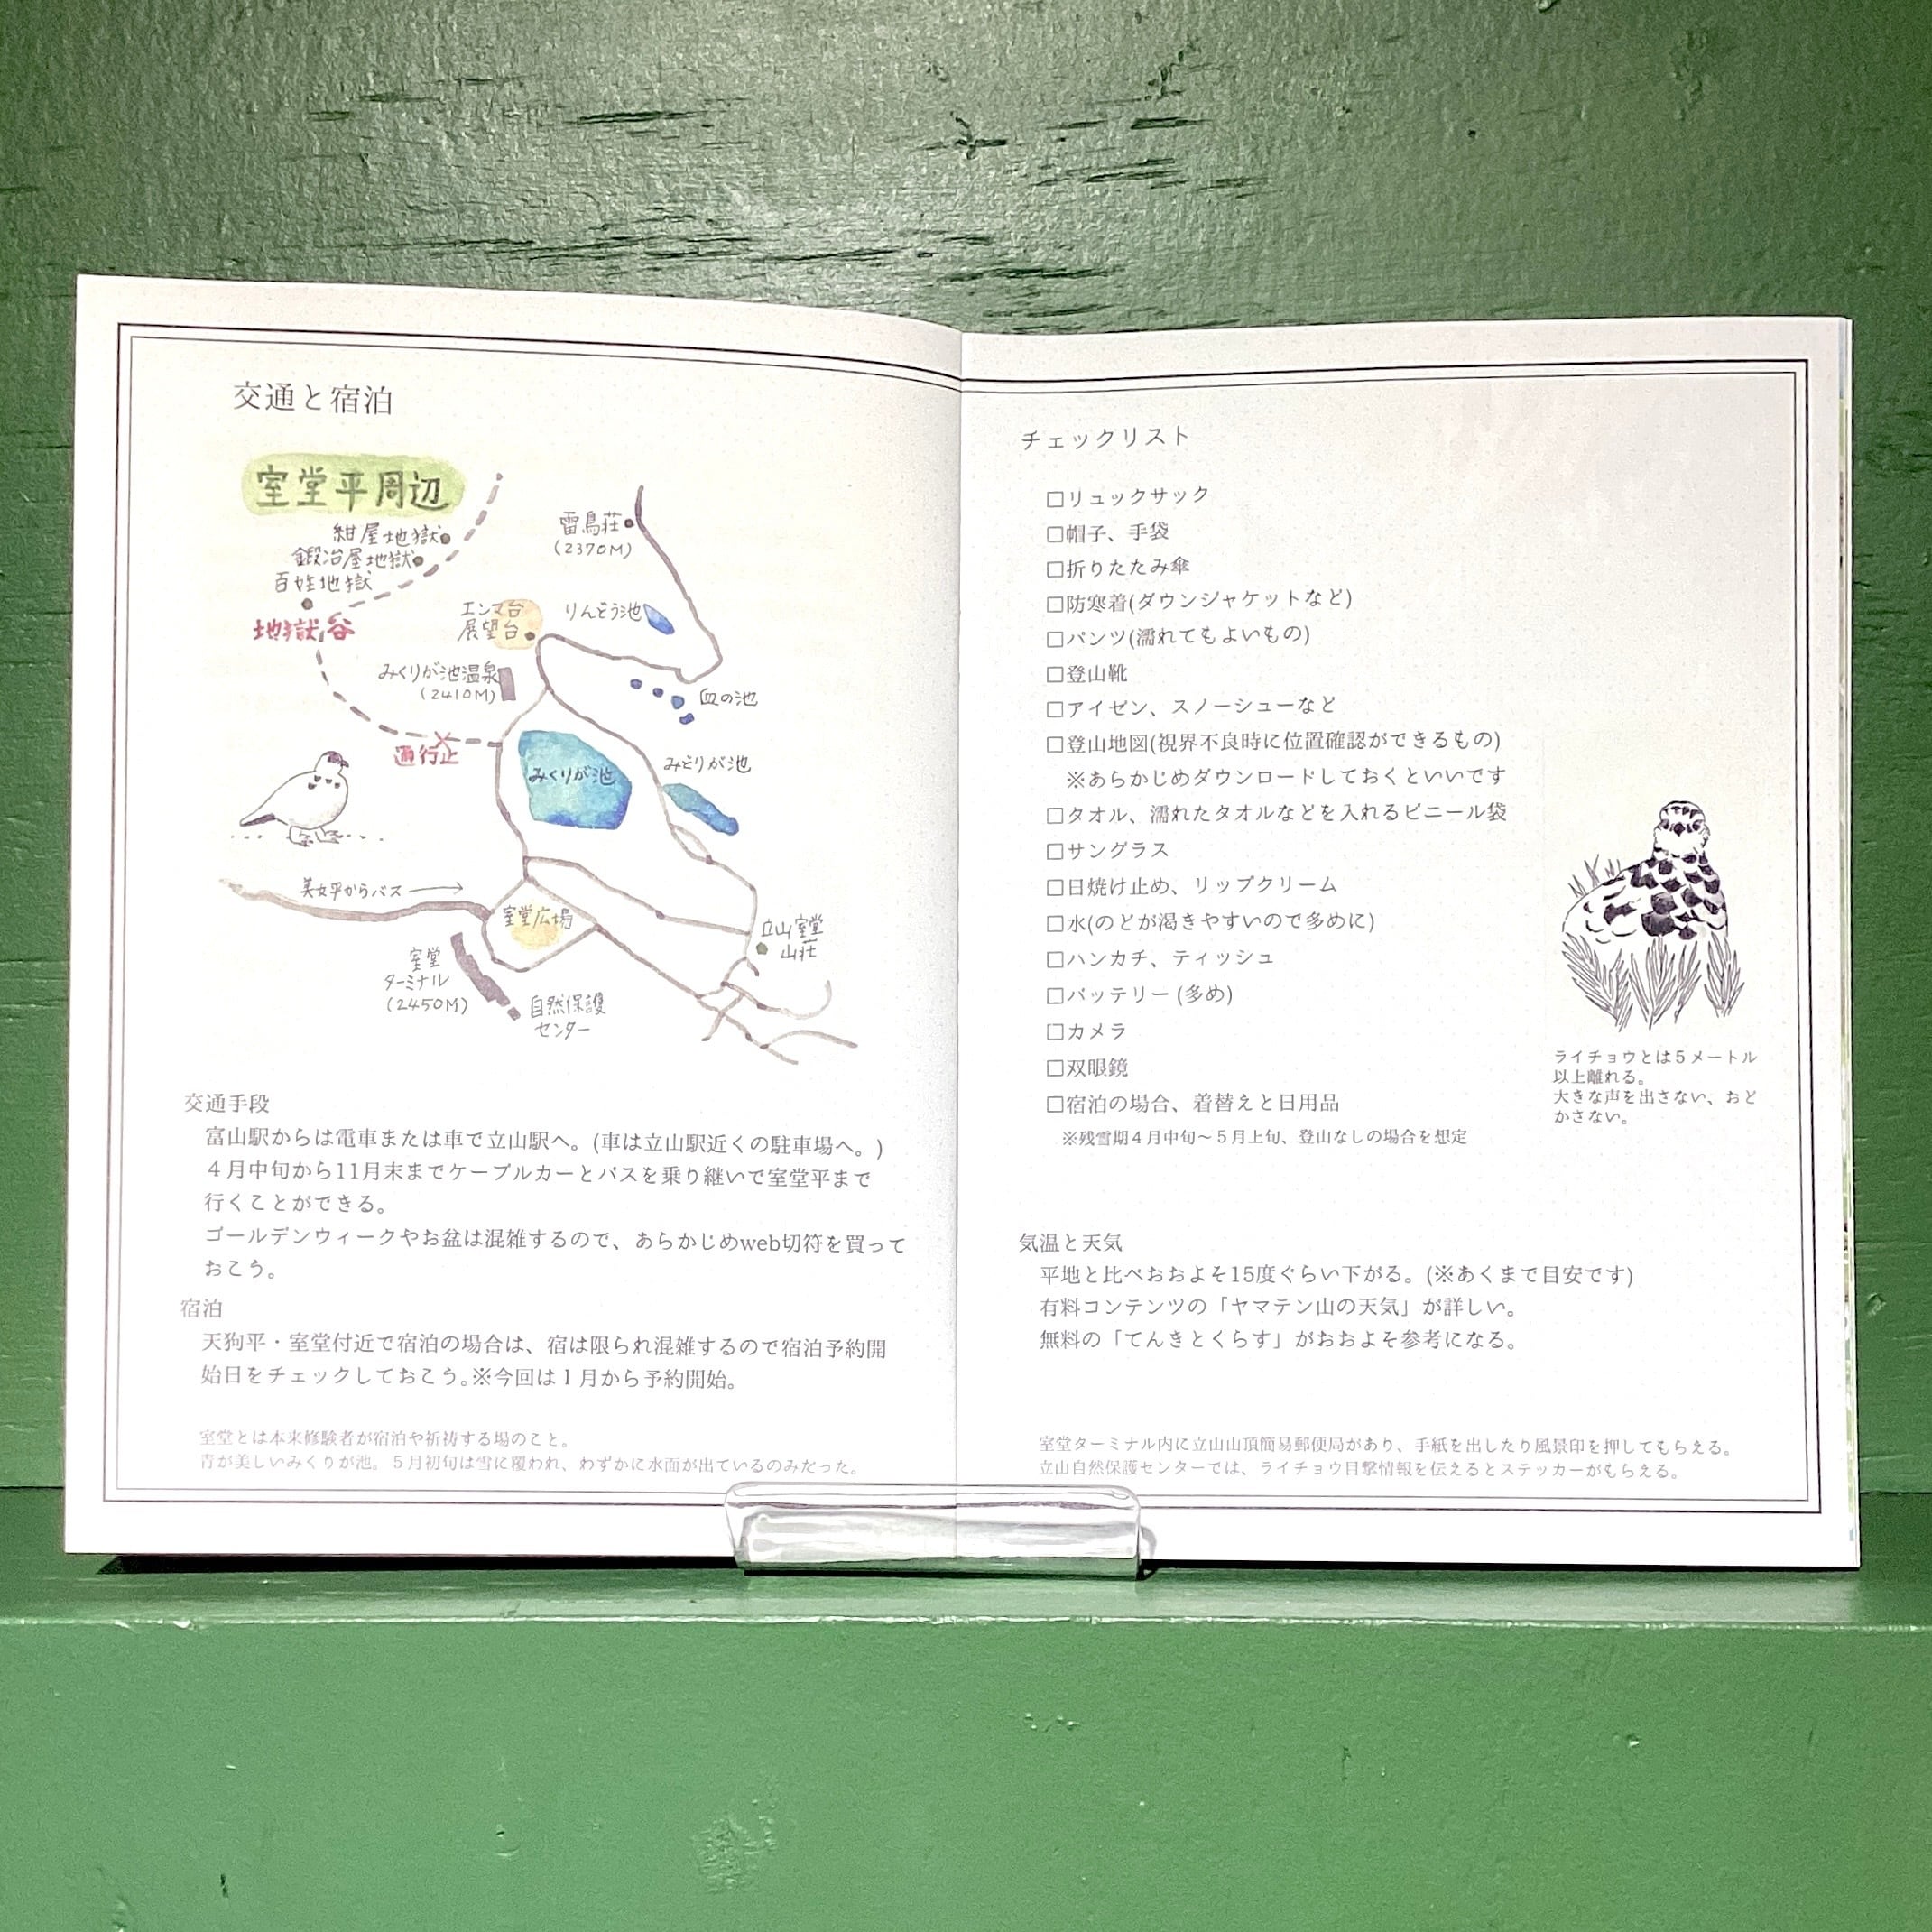 交通と宿泊
室堂平周辺
紺屋地獄
鍛冶屋地獄
百姓地獄
地獄谷
雷鳥荘
(2370M)
エンマ台
展望台
りんどう池
みくりが池温泉
(2410M)
血の池
通行止
みくりが池
みどりが池
美女平からバス
室堂広場
立山室堂
山荘
室堂
ターミナル
(2450M)
自然保護
センター
交通手段
富山駅からは電車または車で立山駅へ。(車は立山駅近くの駐車場へ。)
４月中旬から11月末までケーブルカーとバスを乗り継いで室堂平まで
行くことができる。
ゴールデンウィークやお盆は混雑するので、あらかじめweb切符を買って
おこう。
宿泊
天狗平・室堂付近で宿泊の場合は、宿は限られ混雑するので宿泊予約開
始日をチェックしておこう。※今回は１月から予約開始。
室堂とは本来修験者が宿泊や祈祷する場のこと。
青が美しいみくりが池。５月初旬は雪に覆われ、わずかに水面が出ているのみだった。
チェックリスト
□リュックサック
□帽子、手袋
□折りたたみ傘
□防寒着(ダウンジャケットなど)
□パンツ(濡れてもよいもの)
□登山靴
□アイゼン、スノーシューなど
□登山地図(視界不良時に位置確認ができるもの)
※あらかじめダウンロードしておくといいです
□タオル、濡れたタオルなどを入れるビニール袋
□サングラス
□日焼け止め、リップクリーム
□水(のどが渇きやすいので多めに)
□ハンカチ、ティッシュ
□バッテリー (多め)
□カメラ
□双眼鏡
□宿泊の場合、着替えと日用品
※残雪期４月中旬～５月上旬、登山なしの場合を想定
ライチョウとは５メートル
以上離れる。
大きな声を出さない、おど
かさない。
気温と天気
平地と比べおおよそ15度ぐらい下がる。(※あくまで目安です)
有料コンテンツの「ヤマテン山の天気」が詳しい。
無料の「てんきとくらす」がおおよそ参考になる。
室堂ターミナル内に立山山頂簡易郵便局があり、手紙を出したり風景印を押してもらえる。
立山自然保護センターでは、ライチョウ目撃情報を伝えるとステッカーがもらえる。